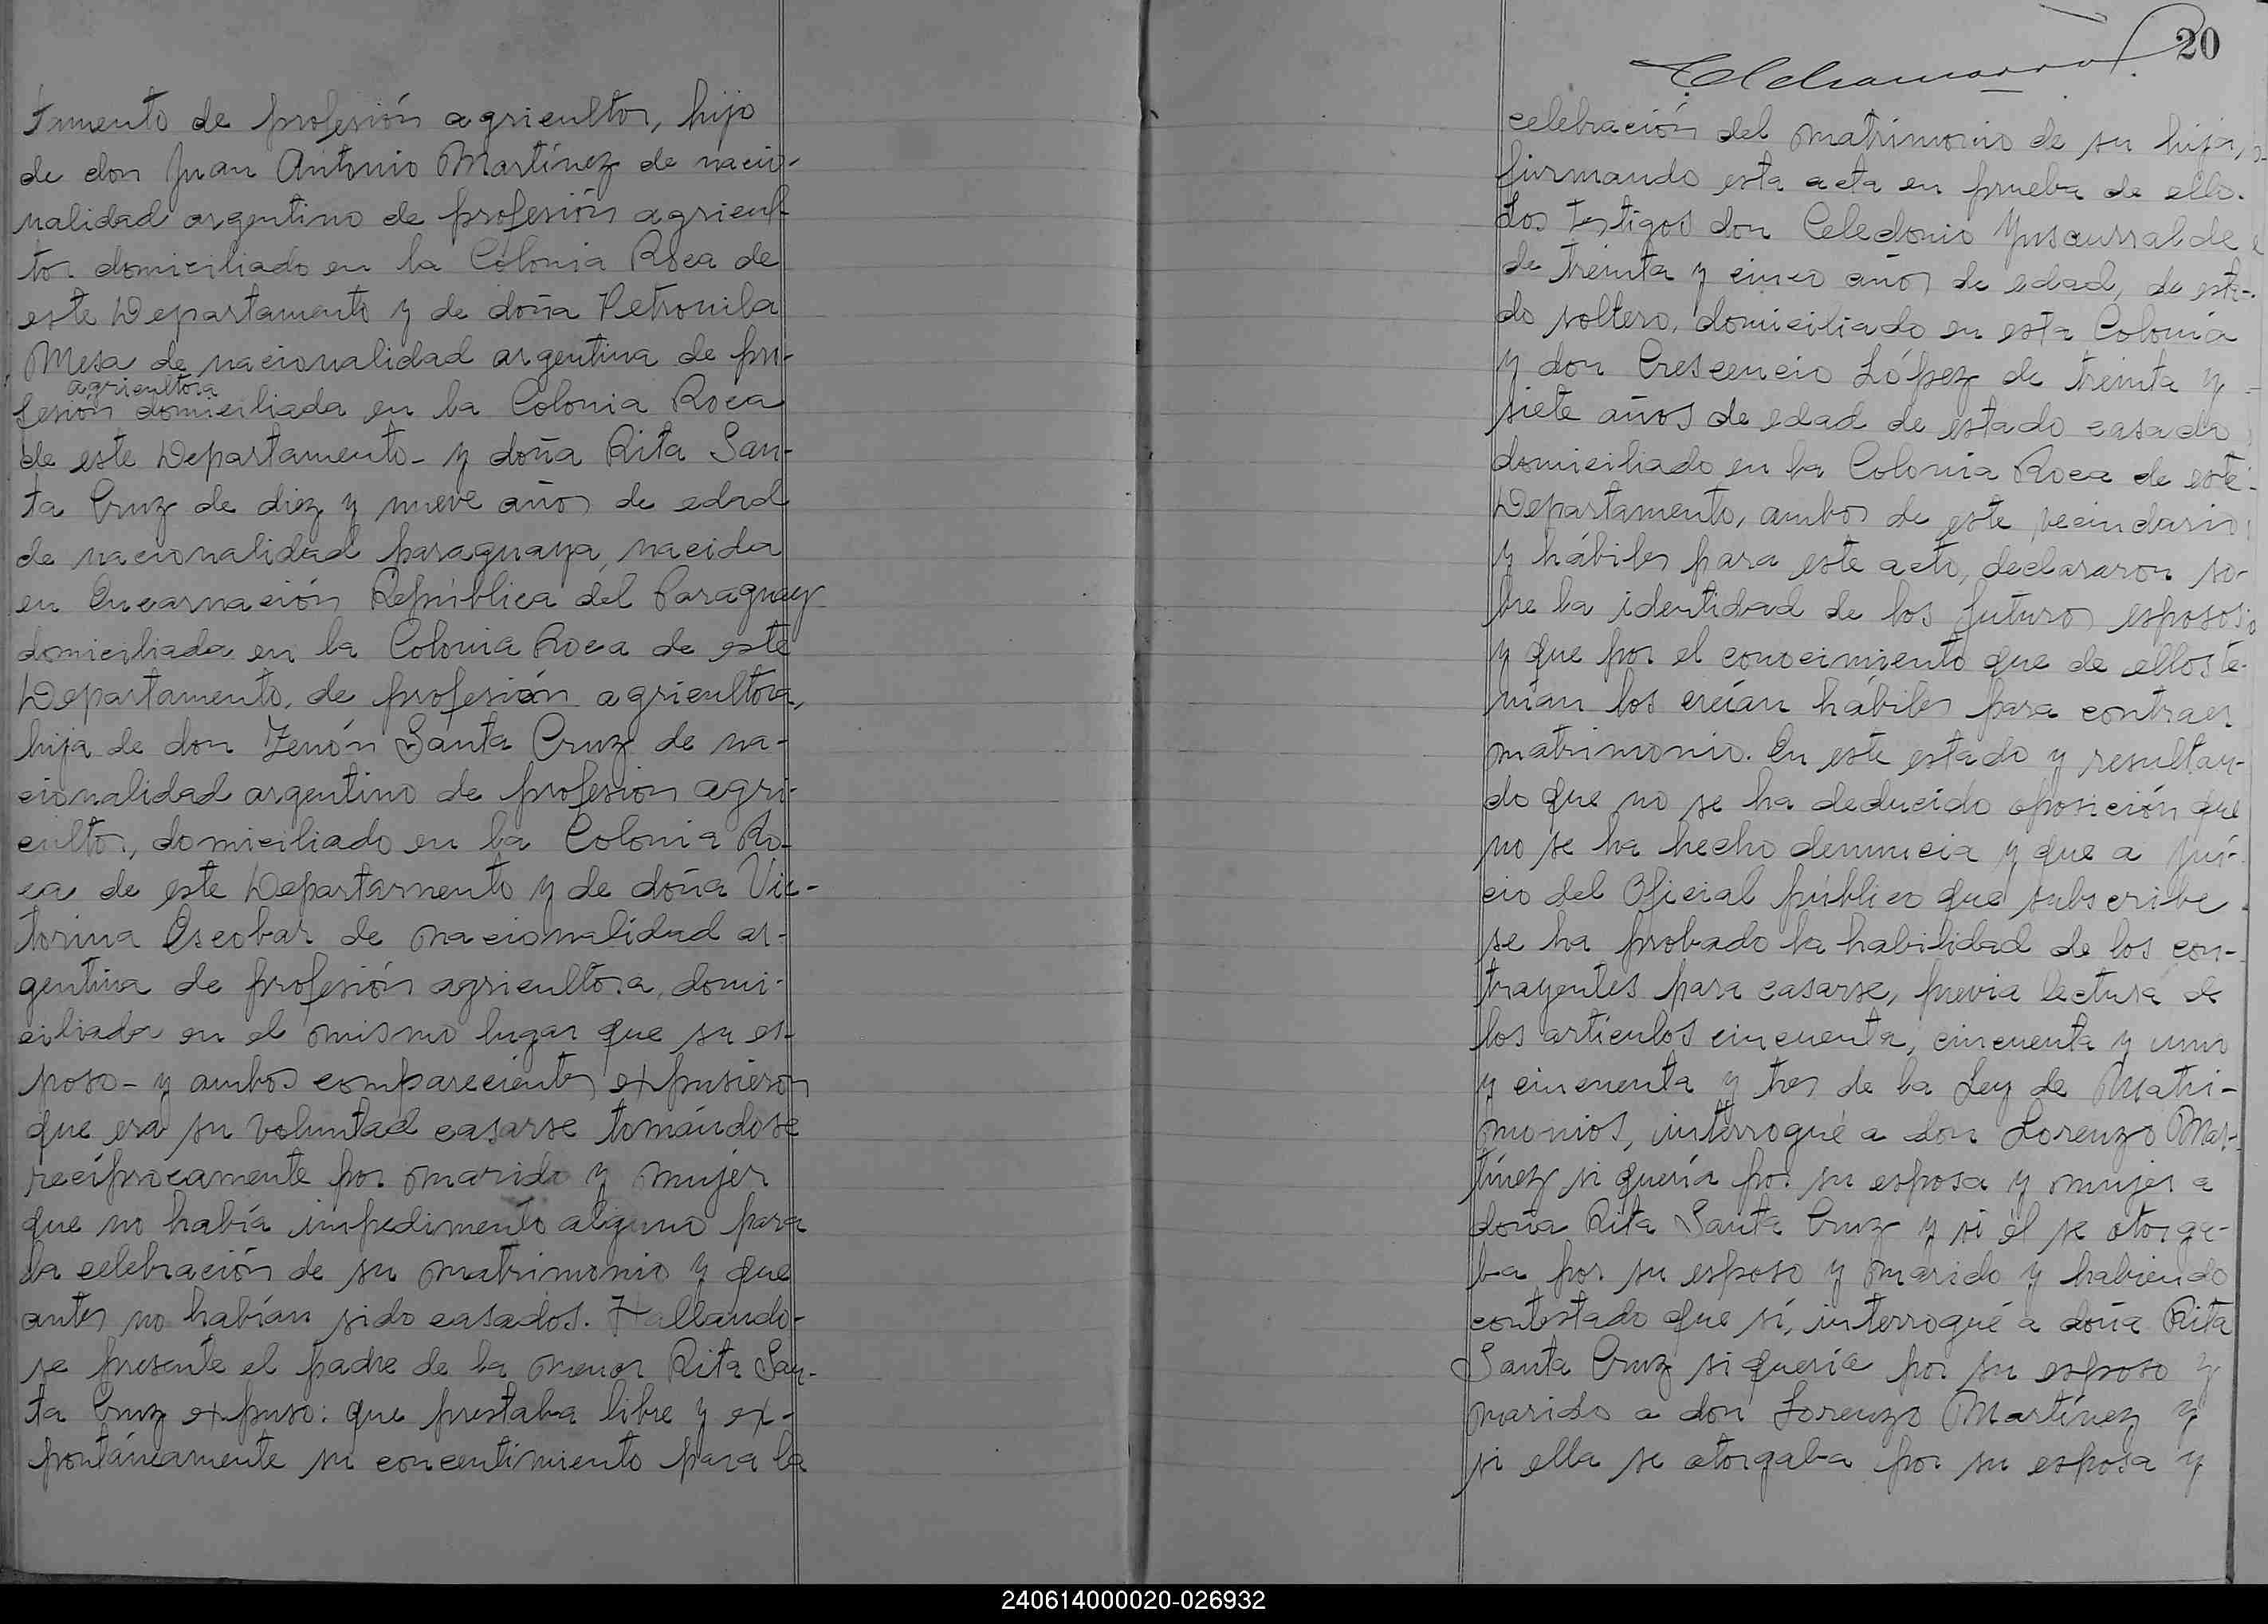 tamento de profesión agricultor, hijo
de don Juan Antonio Martínez de nacio-
nalidad argentino de profesión agricul-
tor domiciliado en la Colonia Roca de
este Departamento y de doña Petronila
Mesa de nacionalidad argentina de pro-
agricultora
fesión domiciliada en la Colonia Roca
de este Departamento - y doña Rita San-
ta Cruz de diez y nueve años de edad
de nacionalidad paraguaya, nacida
en Encarnación República del Paraguay
domiciliada en la Colonia Roca de este
Departamento, de profesión agricultora,
hija de don Zenón Santa Cruz de na-
cionalidad argentino de profesion agri-
cultor, domiciliado en la Colonia Ro-
ca de este Departamento y de doña Vic-
torina Escobar de nacionalidad ar-
gentina de profesión agricultora, domi-
ciliada en el mismo lugar que su es-
poso - y ambos comparecientes expusieron
que era su voluntad casarse tomándose
recíprocamente por marido y mujer
que no había impedimento alguno para
la celebración de su matrimonio y que
antes no habían sido casados. Hallando-
se presente el padre de la menor Rita San-
ta Cruz expuso: que prestaba libre y ex-
pontáneamente su concentimiento para la
20
celebración del matrimonio de su hija,
firmando esta acta en prueba de ello.
Los testigos don Celedonio Ynsaurralde
de treinta y cinco años de edad, de esta-
do soltero, domiciliado en esta Colonia
y don Crescencio López de treinta y
siete años de edad de estado casado
domiciliado en la Colonia Roca de este
Departamento, ambos de este vecindario
y hábiles para este acto, declararon so-
bre la identidad de los futuros esposos
y que por el conocimiento que de ellos te-
nían los creían hábiles para contraer
matrimonio. En este estado y resultan-
do que no se ha deducido oposición que
no se ha hecho denuncia y que a jui-
cio del Oficial público que subscribe
se ha probado la habilidad de los con-
trayentes para casarse, previa lectura de
los artículos cincuenta, cincuenta y uno
y cincuenta y tres de la Ley de Matri-
monios, interrogué a don Lorenzo Mar-
tínez si quería por su esposa y mujer a
doña Rita Santa Cruz y si él se otorga-
ba por su esposo y marido y habiendo
contestado que sí, interrogué a doña Rita
Santa Cruz si quería por su esposo y
marido a don Lorenzo Martínez y
si ella se otorgaba por su esposa y
240614000020-026932